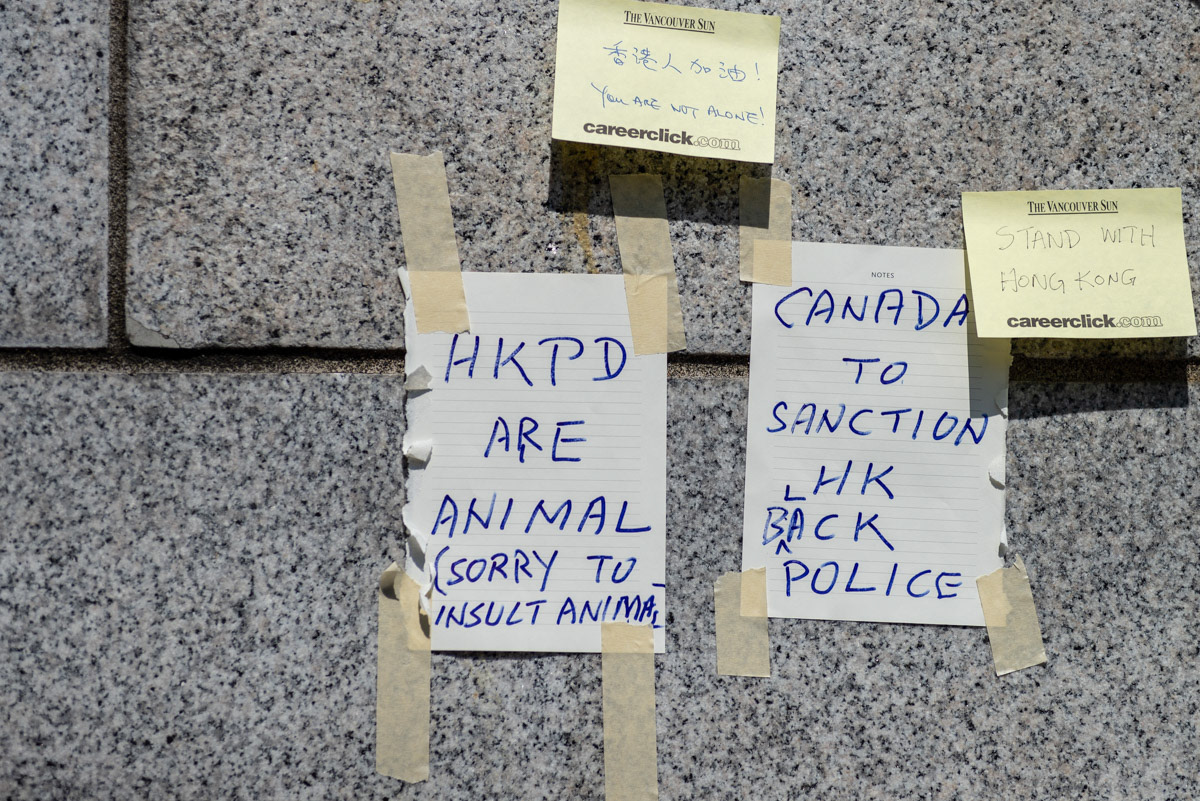 THE VANCOUVER SUN
香港人加油!
YOU ARE NOT ALONE!
careerclick.com
THE VANCOUVER SUN
STAND WITH
HONG KONG
careerclick.com
HKPD
ARE
ANIMAL
(SORRY TO
INSULT ANIMAL
NOTES
CANADA
TO
SANCTION
HK
BLACK
POLICE